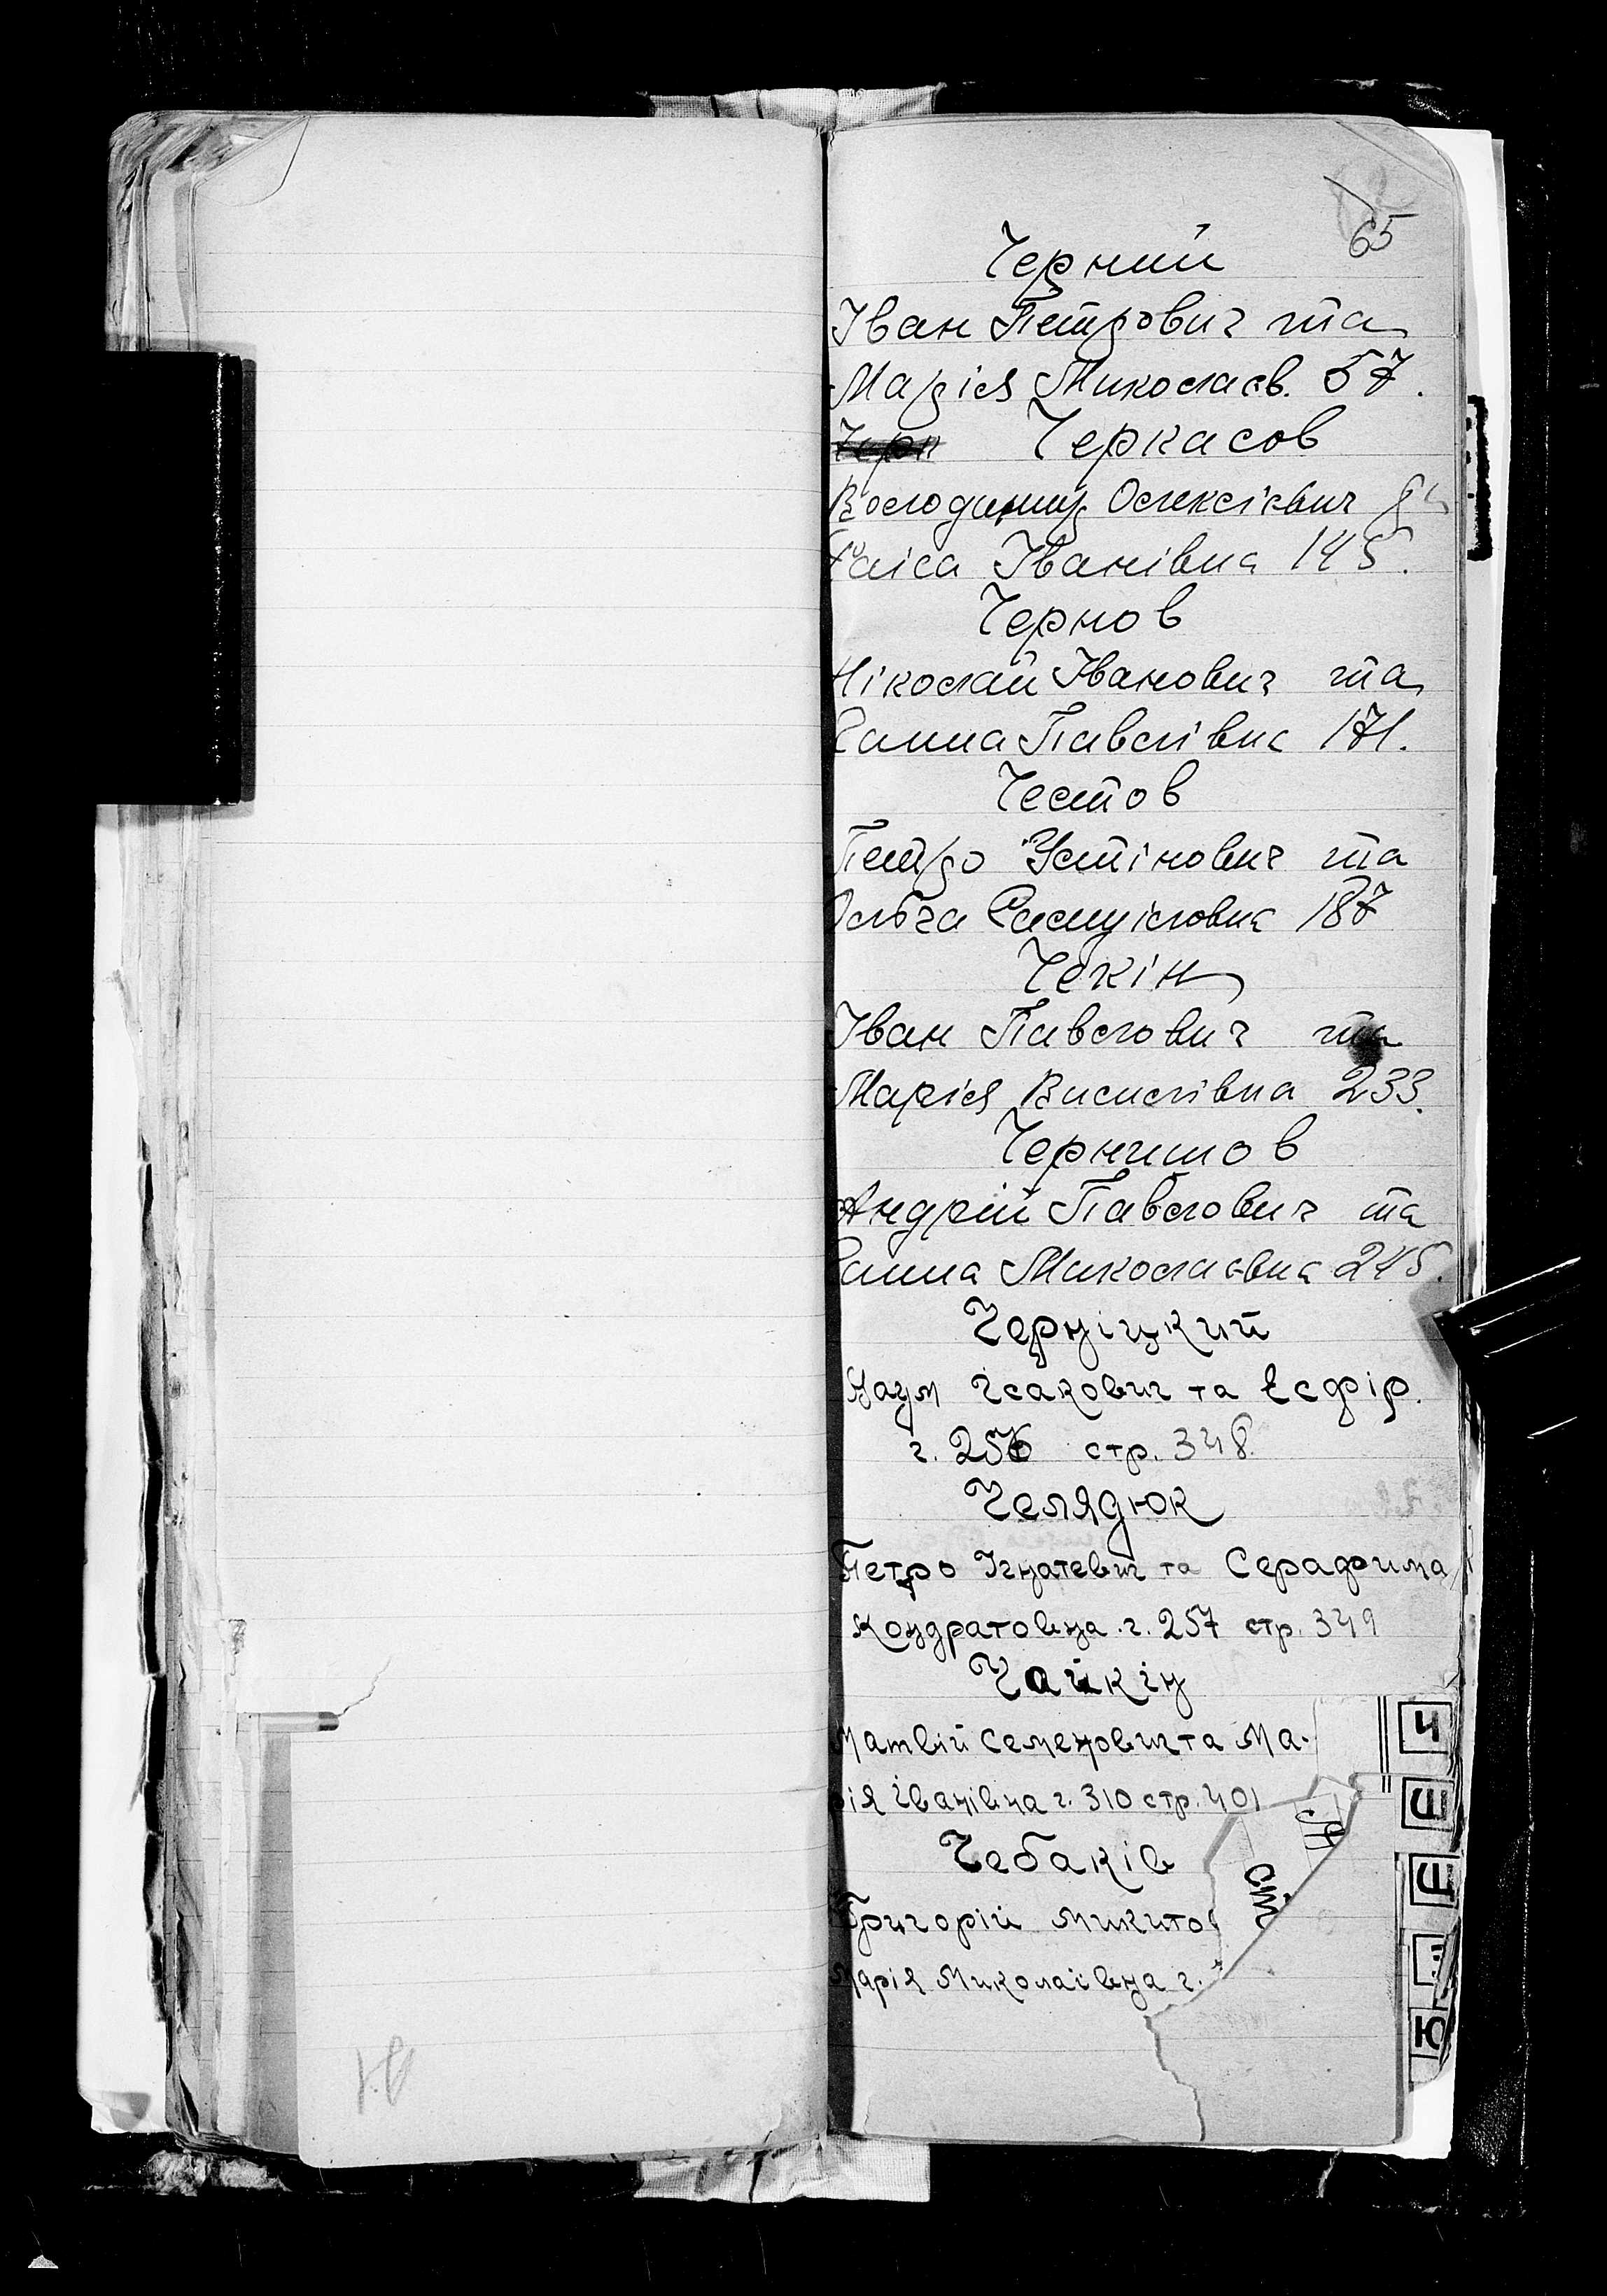 65
Черний
Іван Петрович та
Марія Миколаєв. 57.
Черкасов
Володимир Олексієвич
Раіса Іванівна 145.
Чернов
Ніколай Іванович та
Ганна Павлівна 171.
Честов
Петро Устінович та
Ольга 187
Чекін
Іван Павлович та
Марія Василівна 233.
Чернишов
Андрій Павлович та
Ганна Миколаєвна 245.
Черніцкий
Наум Ісакович та Есфір.
г. 256 стр. 348.
Челядюк
Петро Ігнатевич та Серафима
Кондратовна г. 257 стр. 349
Чайкін
Матвій Семенович та Ма-
рія Іванівна г. 310 стр. 401
Чебаків
Григорій Микито
Марія Миколаівна г.
ст
Ч
Ш
Ю